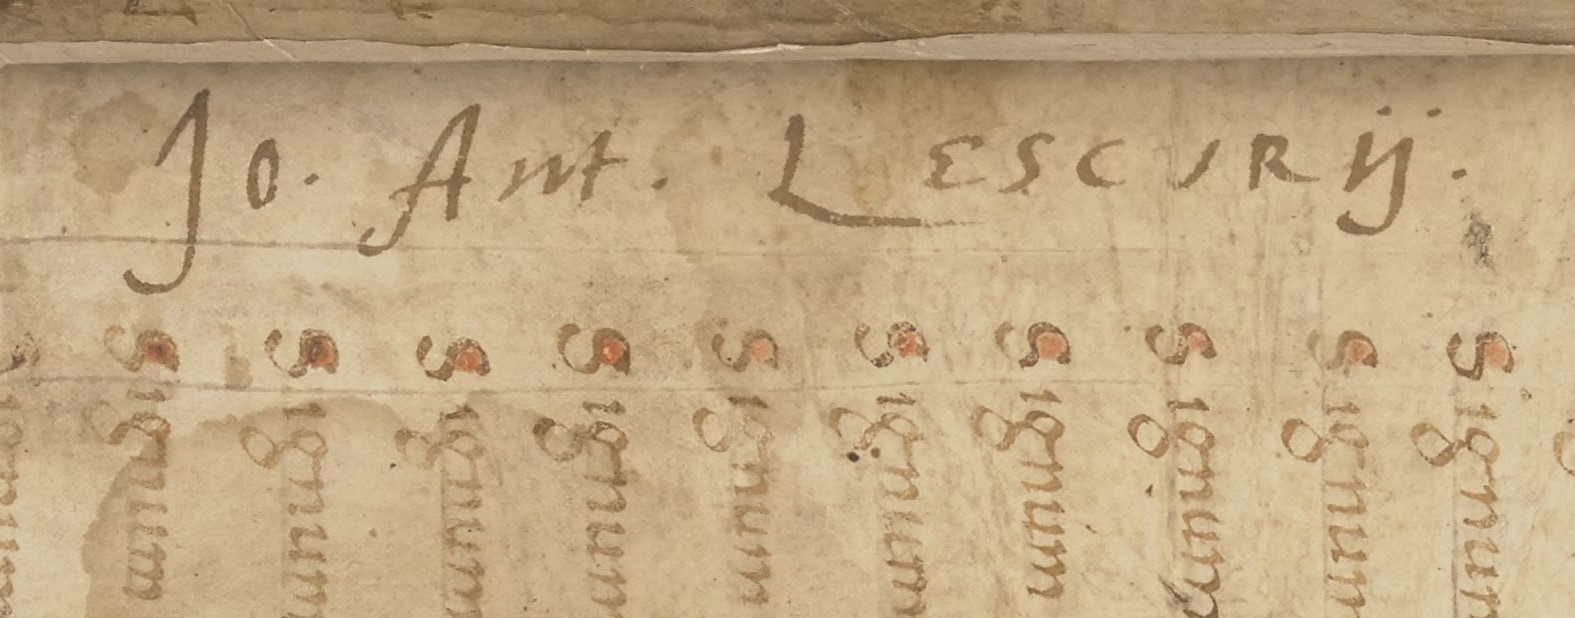 Jo. Ant. LESCVRij.
Signum
Signum
Signum
Signum
Signum
Signum
Signum
Signum
Signum
Signum